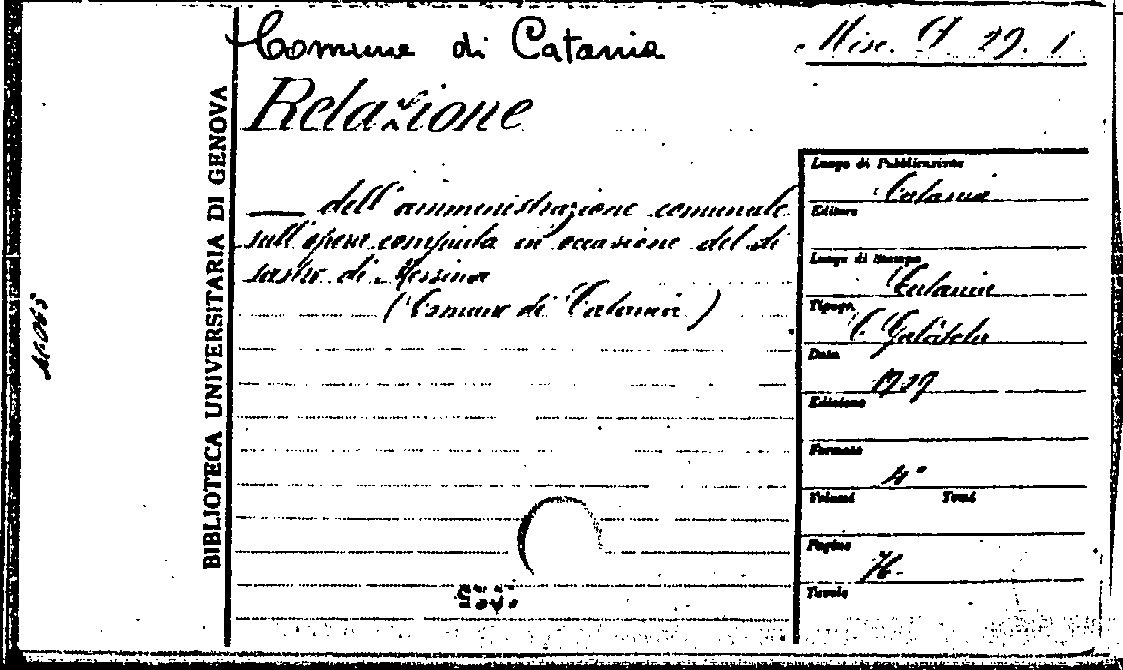 Comune di Catania
Relazione
— dell'amministrazione comunale
sull'opera compiuta in occasione del di
sastro di Messina
(Comune di Catania)
BIBLIOTECA UNIVERSITARIA DI GENOVA
Misc. 29. 1
Luogo di Pubblicazione
Catania
Editore
Luogo di Stampa
Catania
Tipogr.
C. Galàtola
Data
Edizione
Formato
4°
Volumi Tomi
Pagine
Tavole